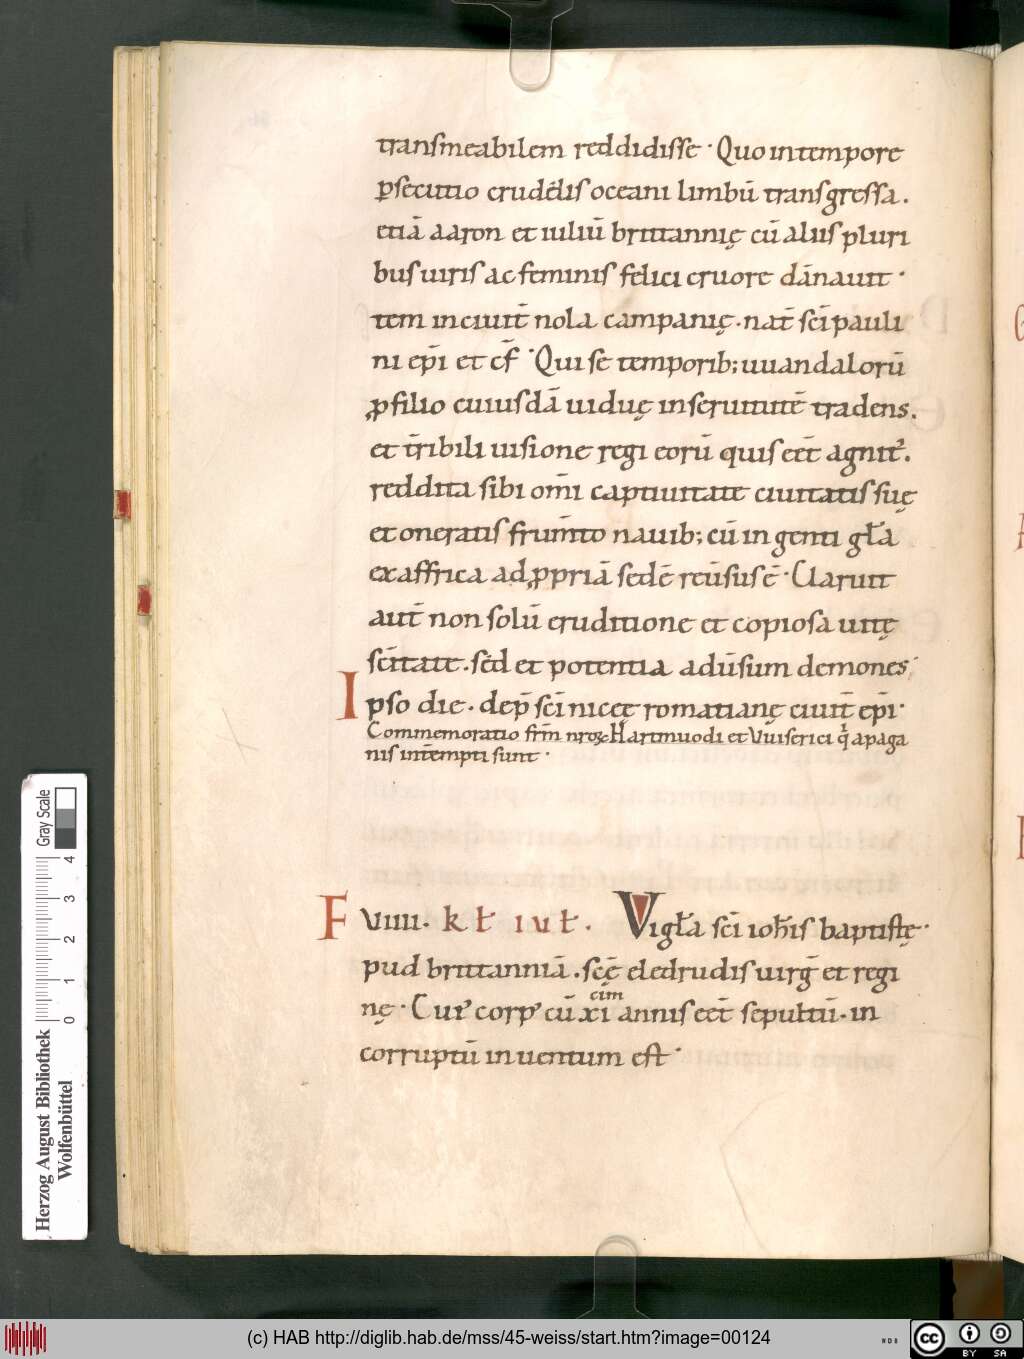 transmeabilem reddidisse · Quo in tempore
ꝑsecutio crudelis oceani limbū transgressa .
etiā aaron et iuliū brittannię cū aliis pluri
bus uiris ac feminis felici cruore dānauit ·
tem in ciuit̄ nola campanię . nat̄ sc̄i pauli
ni ep̄i et cf̄ · Qui se temporib; uuandalorū
ꝓ filio cuiusdā uiduę in seruitutē tradens .
et t̄ribili uisione regi eorū quis eēt agnit᾽ .
reddita sibi om̄i captiuitate ciuitatis suę
et oneratis frum̄to nauib; cū ingenti gƚa
ex affrica ad ꝓpriā sedē reūsus ē · Claruit
aut̄ non solū eruditione et copiosa uitę
sc̄itate . sed et potentia adūsum demones ·
Ipso die . dep̄ sc̄i nicetę romatianę ciuit̄ ep̄i ·
Commemoratio frm̄ nroꝝ Hartmuodi et Vuiserici q̇ a paga
nis int̄empti sunt ·
F VIIII . kƚ iuƚ . Vigƚa sc̄i ioh̄is baptistę ·
pud brittanniā . scę̄ eledrudis uirḡ et regi
nę · Cui᾽ corp᾽ cū xi annis eēt sepultū . in
cim
corruptū inuentum est ·
Herzog August Bibliothek
Wolfenbüttel
0 1 2 3 4
Gray Scale
(c) HAB http://diglib.hab.de/mss/45-weiss/start.htm?image=00124
WDB
cc BY SA